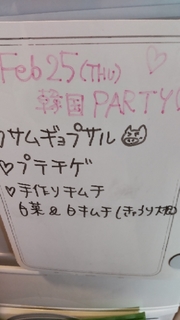 Feb 25 (THU) ♡
韓国 PARTY!
♡サムギョプサル
♡プテチゲ
♡手作りキムチ
白菜 & 白キムチ (きゅうり大根)